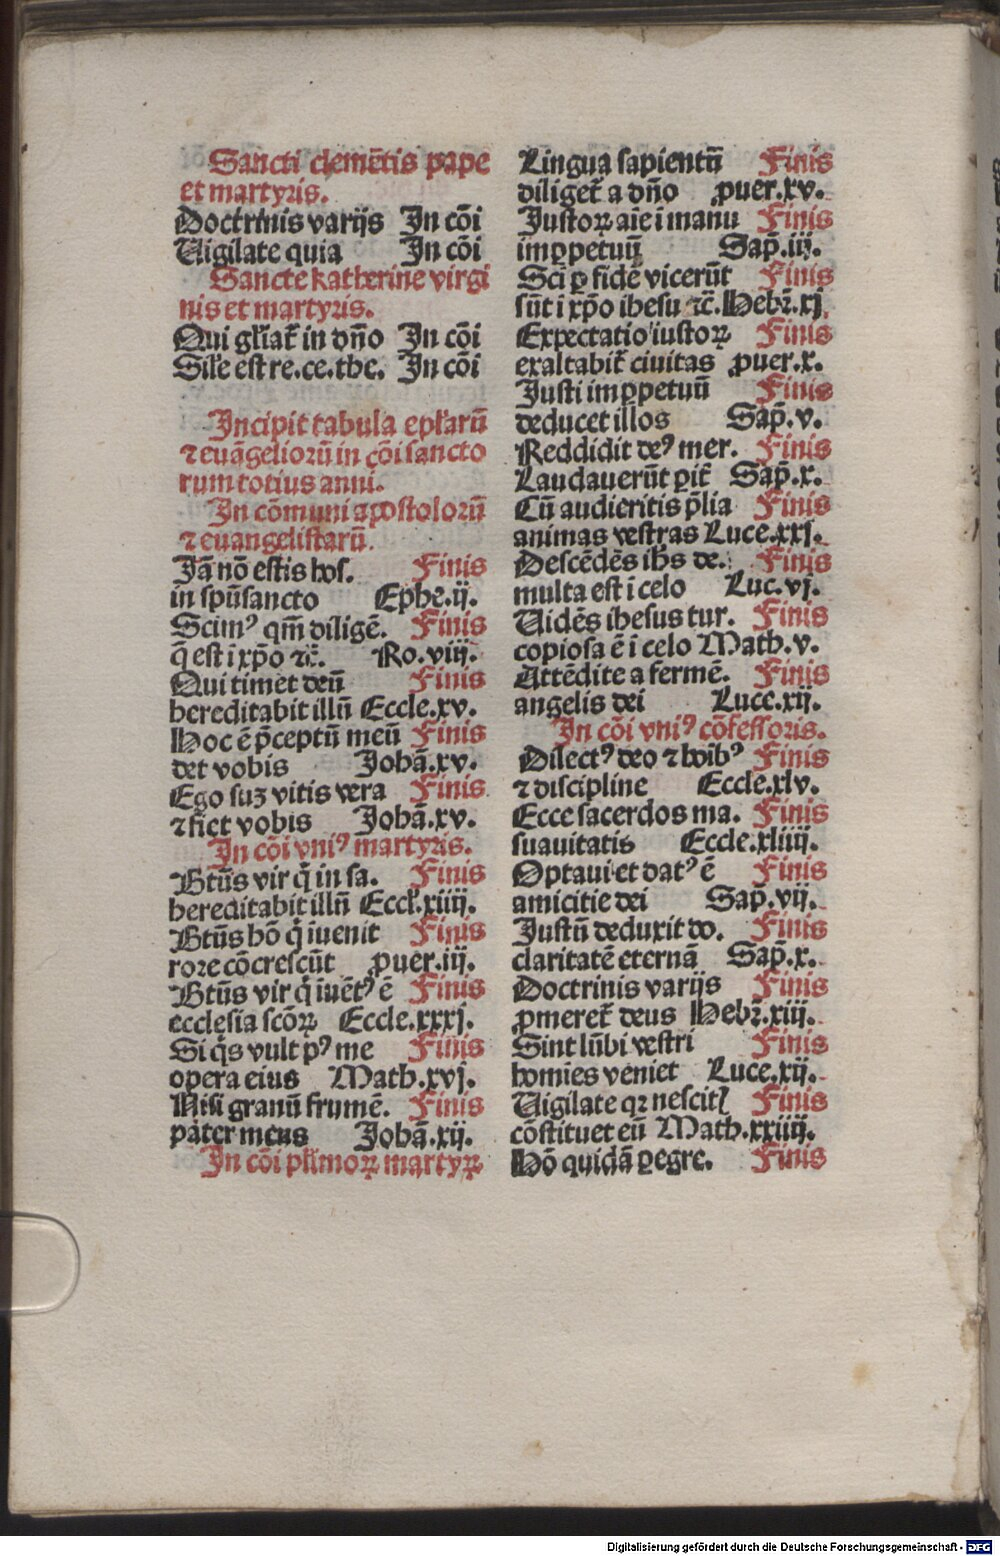 Sancti clemētis pape
et martyris.
Doctrinis varijs In cōi
Uigilate quia In cōi
Sancte katherine virgi
nis et martyris.
Qui gl'iat̄ in dn̄o In cōi
Sil'e est re.ce.the. In cōi
Incipit tabula epl'arū
⁊ euāgeliorū in cōi sancto
rum totius anni.
In cōmuni apostolorū
⁊ euangelistarū.
Jā nō estis hos. Finis
in spūsancto Ephe.ij.
Scimꝰ qm̄ diligē. Finis
q̄ est i xp̄o ⁊c̄. Ro.viij.
Qui timet deū Finis
hereditabit illū Eccle.xv.
Hoc ē p̄ceptū meū Finis
det vobis Johā.xv.
Ego suꝫ vitis vera Finis
⁊ fiet vobis Johā.xv.
In cōi vniꝰ martyris.
Btūs vir q̄ in sa. Finis
hereditabit illū Eccl'.xiiij.
Btūs hō q̄ iuenit Finis
rore cōcrescūt ꝓuer.iij.
Btūs vir q̄ iuētꝰ ē Finis
ecclesia scōꝝ Eccle.xxxj.
Si q̄s vult pꝰ me Finis
opera eius Math.xvj.
Nisi granū frumē. Finis
pater meus Johā.xij.
In cōi pl'imoꝝ martyꝝ
Lingua sapientū Finis
diliget̄ a dn̄o ꝓuer.xv.
Justoꝝ aīe i manu Finis
imꝑpetuū Sap̄.iij.
Sci̅ ꝑ fidē vicerūt Finis
sūt i xp̄o ihesu ⁊c̄. Hebꝛ̄.xj.
Expectatio iustoꝝ Finis
exaltabit̄ ciuitas ꝓuer.x.
Justi imꝑpetuū Finis
deducet illos Sap̄.v.
Reddidit deꝰ mer. Finis
Laudauerūt ꝑit̄ Sap̄.x.
Cū audieritis p̄lia Finis
animas vestras Luce.xxj.
Descēdēs ihs̄ de. Finis
multa est i celo Luc.vj.
Uidēs ihesus tur. Finis
copiosa ē i celo Math.v.
Attēdite a fermē. Finis
angelis dei Luce.xij.
In cōi vniꝰ cōfessoris.
Dilectꝰ deo ⁊ hoibꝰ Finis
⁊ discipline Eccle.xlv.
Ecce sacerdos ma. Finis
suauitatis Eccle.xliiij.
Optaui et datꝰ ē Finis
amicitie dei Sap̄.vij.
Justū deduxit do. Finis
claritatē eternā Sap̄.x.
Doctrinis varijs Finis
ꝓmeret̄ deus Hebꝛ̄.xiij.
Sint lūbi vestri Finis
homīes veniet Luce.xij.
Uigilate qꝛ nescitꝭ Finis
cōstituet eū Math.xxiiij.
Hō quidā ꝑegre. Finis
Digitalisierung gefördert durch die Deutsche Forschungsgemeinschaft - DFG